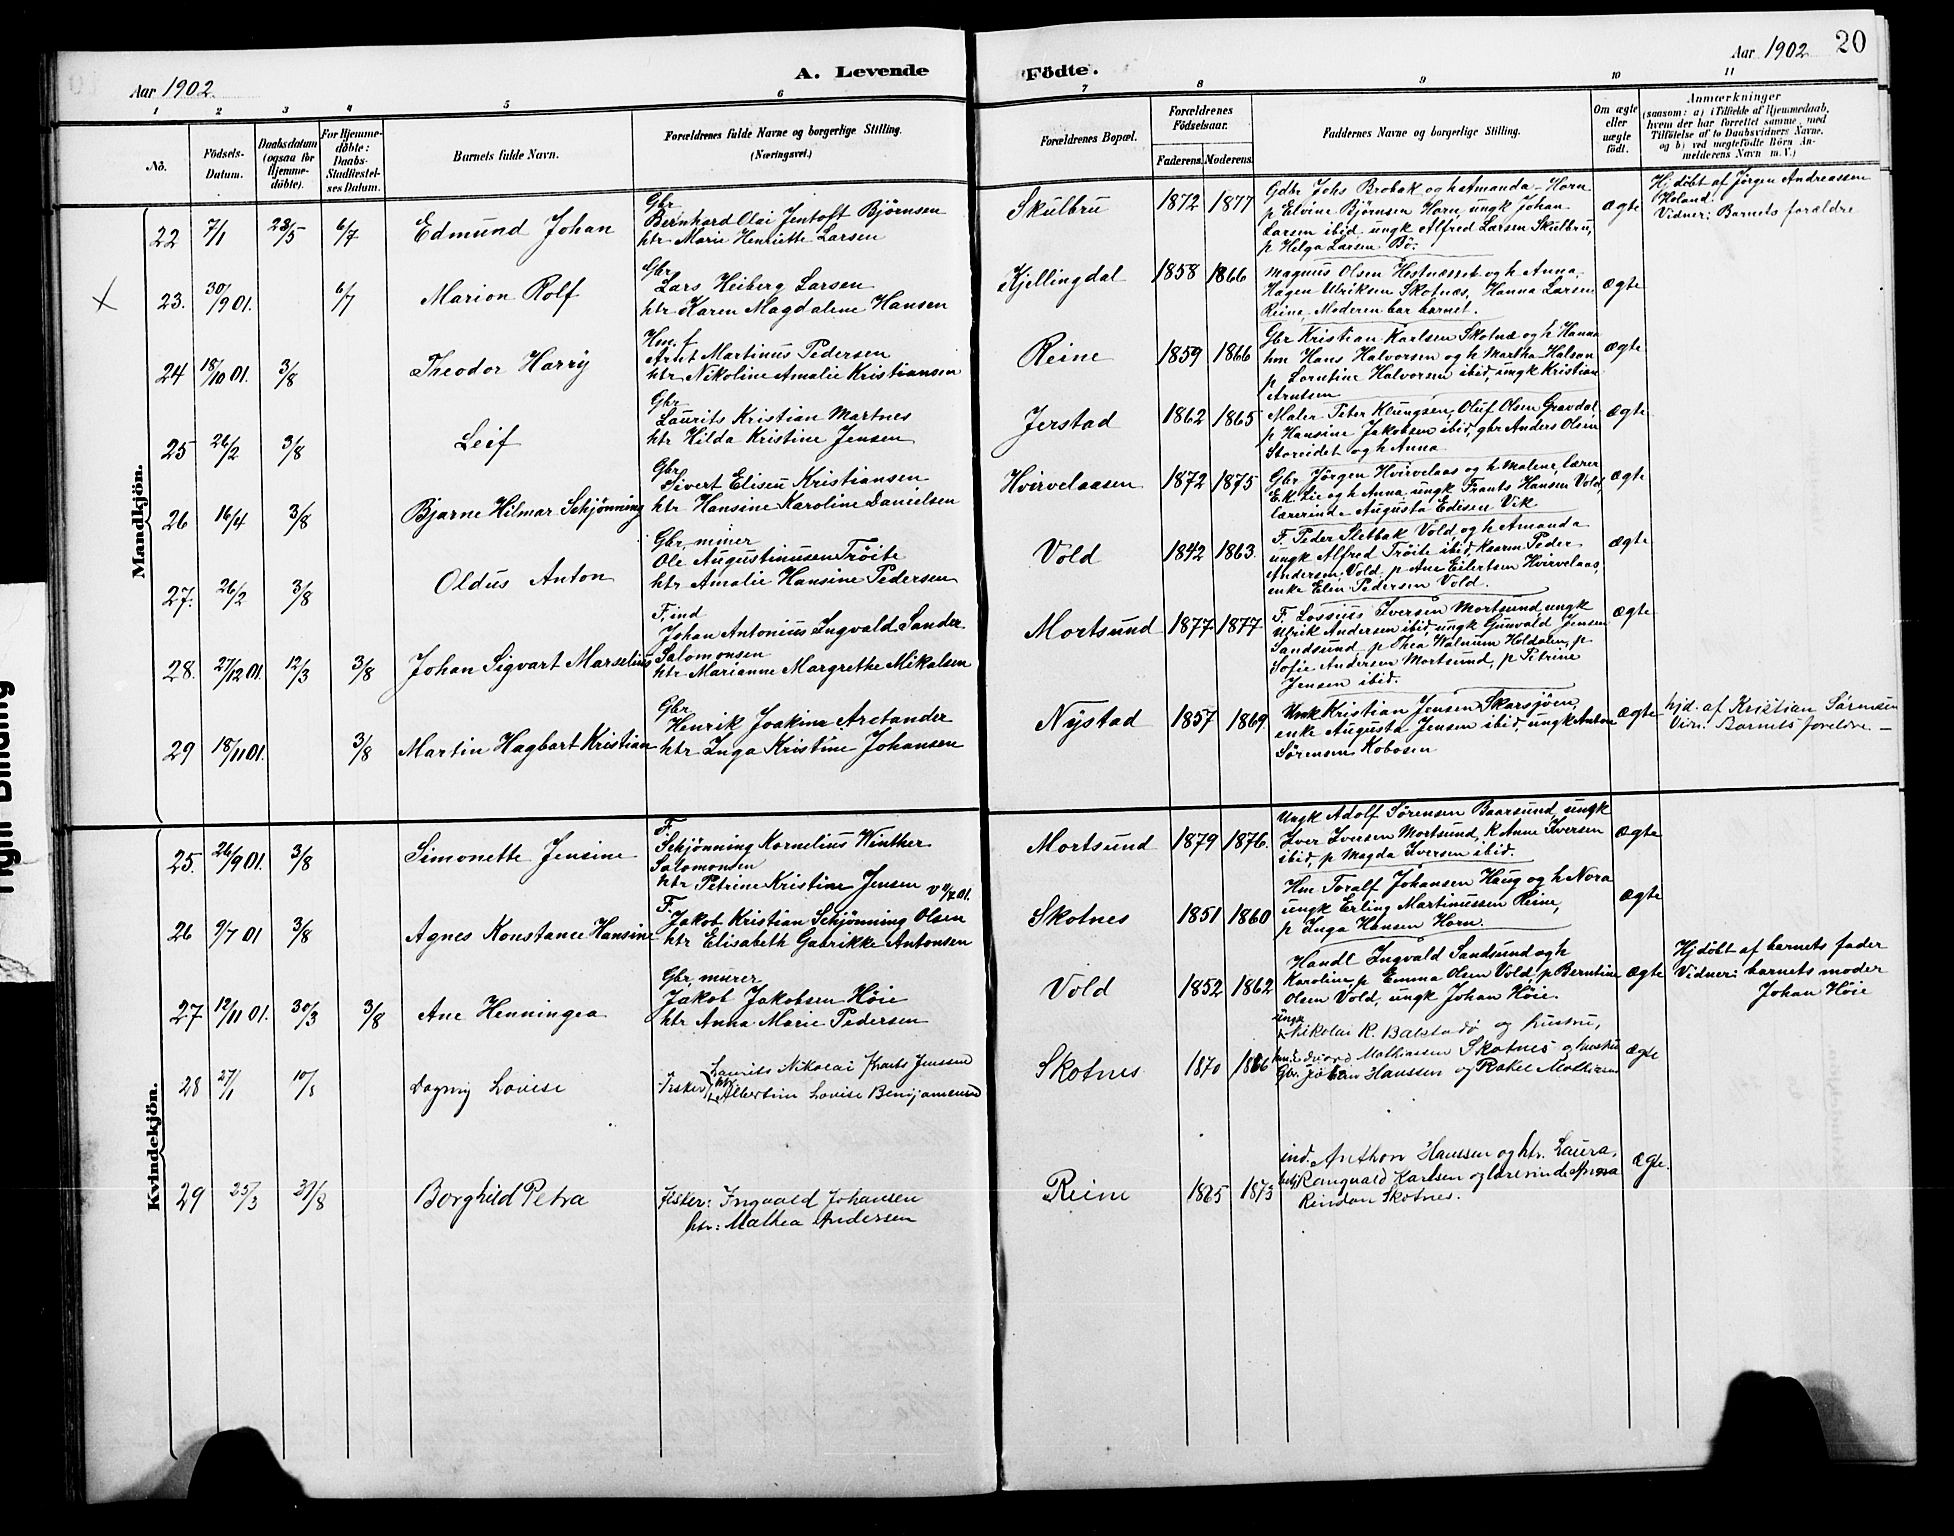 Aar 1902.
A. Levende
1 2 3 4 5 6
No.
Födsels-Datum.
Daabsdatum (ogsaa for Hjemme-döbte).
For Hjemme-döbte: Daabs-Stadfæstel-ses Datum.
Barnets fulde Navn.
Forældrenes fulde Navne og borgerlige Stilling.
(Næringsvei.)
Mandkjön.
22 7/1 23/5 6/7 Edmund Johan
Gbr
Bernhard Olai Jentoft Bjørnsen
htr Marie Henriette Larsen
23. 30/9 01. 6/7 Marion Rolf
Gbr
Lars Heiberg Larsen
htr Karen Magdalene Hansen
24 18/10 01. 3/8 Theodor Harry
Hm. f
Arnt Martinus Pedersen
htr Nikoline Amalie Kristiansen
25 26/2 3/8 Leif
Gbr
Laurits Kristian Martnes
htr Hilda Kristine Jensen
26 16/4 3/8 Bjarne Hilmar Schjønning
Gbr
Sivert Eliseu Kristiansen
htr Hansine Karoline Danielsen
27. 26/2 3/8 Oldus Anton
Gbr, murer
Ole Augustinusen Trøite
htr Amalie Hansine Pedersen
28. 27/12 01. 12/3 3/8 Johan Sigvart Marselius
F, ind
Johan Antonius Ingvald Sander
Salomonsen
htr Marianne Margrethe Mikalsen
29 18/11 01. 3/8 Martin Hagbart Kristian
Gbr
Henrik Joakim Arctander
htr Inga Kristine Johansen
Kvindekjön.
25. 26/9 01. 3/8 Simonette Jensine
F.
Schjønning Kornelius Winther
Salomonsen
htr Petrine Kristine Jensen
26 9/7 01 3/8 Agnes Konstance Hansine
F.
Jakob Kristian Schjønning Olsen
htr Elisabeth Gabrikke Antonsen
27 12/11 01. 30/3 3/8 Ane Henningea
Gbr, murer
Jakob Jakobsen Høie
htr Anna Marie Pedersen
28 27/1 10/8 Dagny Lovise
Laurits Nikolai Jenssen
Fisker htr
Albertine Lovise Benjaminsen
29 25/3 31/8 Borghild Petra
Fisker: Ingvald Johansen
htr: Mathea Andersen
Födte.
Aar 1902 20
7 8 9 10 11
Forældrenes Bopæl.
Forældrenes Födselsaar.
Faderens. Moderens.
Faddernes Navne og borgerlige Stilling.
Om ægte eller uægte født.
Anmærkninger
(saasom: a) i Tilfælde af Hjemmedaab,
hvem der har forrettet samme, med
Tilföielse af to Daabsvidners Navne.
og b) ved uægtefödte Börn An-
melderens Navn m. V.)
Skulbru 1872 1877
Gdbr Johs Brobak og h Amanda - Horn
p Elvine Bjørnsen Horn, ungk Johan
Larsen ibid ungk Alfred Larsen Skulbru,
p Helga Larsen Bö.
ægte
Hj. døbt af Jörgen Andreassen
Holand.
Vidner: Barnets forældre
Kjellingdal 1858 1866
Magnus Olsen Hestnæsset og h Anna,
Hagen Ulriksen Skotnæs, Hanna Larsen
Reine, Moderen bar barnet.
ægte
Reine 1859 1866
Gbr Kristian Karlsen Skotnæ og h Hanna
hm Hans Halvorsen og h Martha Halsan
p Lorntine Halvorsen ibid, ungk Kristian
Arntsen
ægte
Jerstad 1862 1865
Maler Peter Klungsen, Oluf Olsen Gravdal,
p Hansine Jakobsen ibid, gbr Anders Olsen
Storeidet og h Anna
ægte
Hvirvelaasen 1872 1875
Gbr Jörgen Hvirvelaas og h Malene, lærer
E.K. Lie og h Anna, ungk Frants Hansen Vold,
lærerinde Augusta Edisen Vik
ægte
Vold 1842 1863.
F. Peder Sletbak Vold og h Amanda
ungk Alfred Trøite ibid, Kaaren Peder
Andersen Vold p Ane Eilertsen Hvirvelaas,
enke Elen Pedersen Vold.
ægte
Mortsund 1877 1877
F. Lossius Iversen Mortsund ungk
Ulrik Andersen ibid, ungk Gunvald Jensen
Sandsund p Thea Walnum Holdalen, p
Sofie Andersen Mortsund, p Petrine
Jensen ibid.
ægte
Nystad 1857 1869.
Umk Kristian Jensen Skarsjøen,
enke Augusta Jensen ibid, ungk Anton
Sørensen Kobosen
ægte
hjd. af Kristian Sørensen
Vidn: Barnets foreldre.
Mortsund 1879 1876.
Ungk Adolf Sørensen Baarsund, ungk
Iver Iversen Mortsund, K Anne Iversen
ibid, p Magda Iversen ibid.
ægte
Skotnes 1851 1860
Hm Toralf Johansen Haug og h Nora
ungk Erling Martinussen Reine,
p Inga Hansen Horn.
ægte
Vold 1852 1862
Handl Ingvald Sandsund og h
Karoline, p Emma Olsen Vold, p Berntine
Olsen Vold, ungk Johan Høie.
ægte
Hj døbt af barnets fader
Vidner: barnets moder
Johan Høie
Skotnes 1870 1866
ungk
Nikolai R. Balstadø og hustru,
Edvard Mathiassen Skotnes og hustru
Gbr. Johan Hanssen og Rakel Mathisen
ægte
Reine 1865 1873
ind. Anthon Hanssen og htr. Laura,
Rangvald Karlsen og lærerinde Anna
Rindan Skotnes.
ægte.